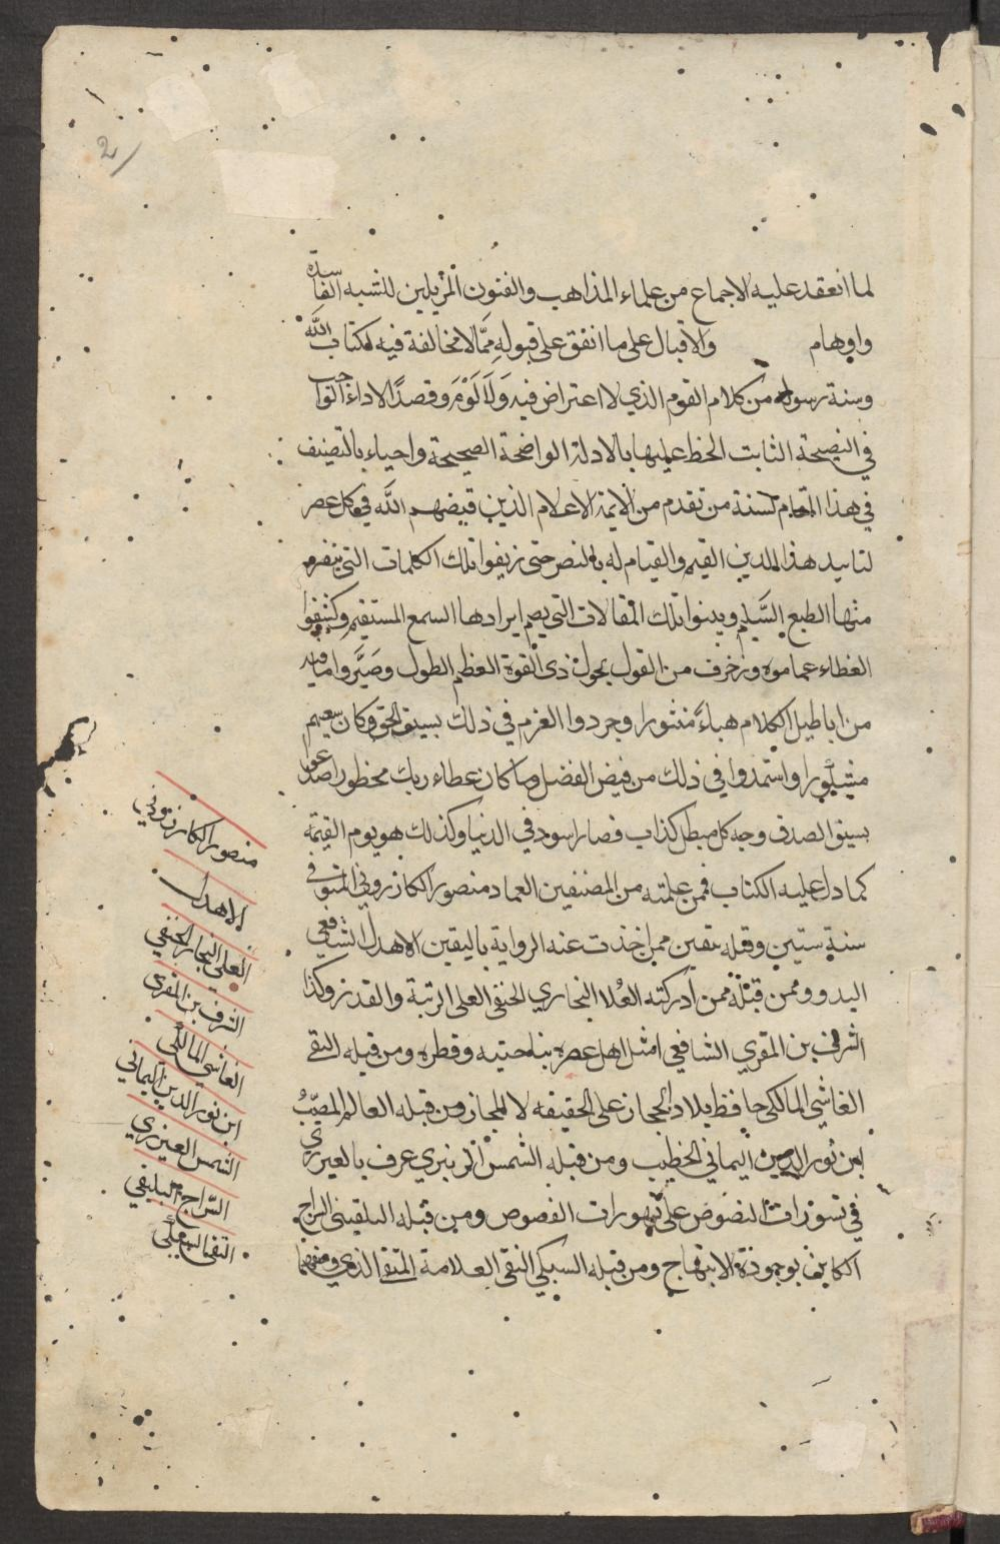 لما انعقد عليه الاجماع من علماء المذاهب والفنون المزيلين للشبه الفاسدة
واوهام والاقبال على ما اتفق على قبوله مما لا مخالفة فيه لكتاب الله
وسنة رسوله من كلام القوم الذي لا اعتراض فيه ولا لوم وقصدا لاداء الواجب
في النصيحة الثابت الحظ عليها بالادلة الواضحة الصحيحة واحياء بالتصنيف
في هذا المقام لسنة من تقدم من الائمة الاعلام الذين قيضهم الله في كل عصر
لتاييد هذا الدين القيم والقيام له بالنصر حتى زيفوا تلك الكلمات التي ينفر
منها الطبع السليم وبينوا تلك المقالات التي يصم ايرادها السمع المستقيم وكشفوا
الغطاء عما موه وزخرف من القول بحول ذي القوة العظيم الطول وصيروا ما فيه
من اباطيل الكلام هباء منثورا وجردوا العزم في ذلك بسيف الحق وكان سعيهم
واستمدوا في ذلك من فيض الفضل وما كان عطاء ربك محظورا
بسيف الصدق وجه كل مبطل كذاب فصار اسود في الدنيا وكذلك هو يوم القيمة
كما دل عليه الكتاب فمن علمته من المصنفين العماد منصور الكازروني المتوفى
سنة ستين وقبله بيقين ممن اخذت عنه الرواية باليقين الاهدل الشافعي
البدر وممن قبله ممن ادركته العلا البخاري الحنفي العلي الرتبة والقدر وكذا
الشرف بن المقري الشافعي امثل اهل عصره بناحيته وقطره ومن قبله التقي
الفاسي المالكي حافظ بلاد الحجاز على الحقيقة لا المجاز ومن قبله العالم
ابن نور الدين اليماني الخطيب ومن قبله الشمس عرف بالعيزري
في تسورات النصوص على تهورات الفصوص ومن قبله البلقيني السراج
ومن قبله السبكي التقي العلامة
منصور الكازروني
الاهدل
العلي البخار الحنفي
الشرف بن المقري
الفاسي المالكي
ابن نور الدين اليماني
الشمس العيزري
السراج البلقيني
التقي السبكي
2